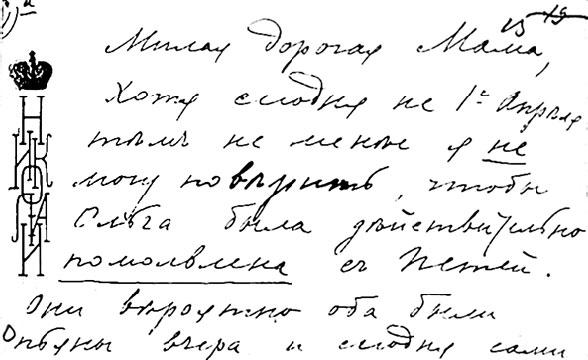 15
Милая дорогая Мама,
Хотя сегодня не 1ᵉ Апреля
тѣмъ не менѣе я не
могу повѣрить, чтобы
Ольга была дѣйствительно
помолвлена съ Петей.
Они вѣроятно оба были
пьяны вчера и сегодня сами
НИКОЛАЙ